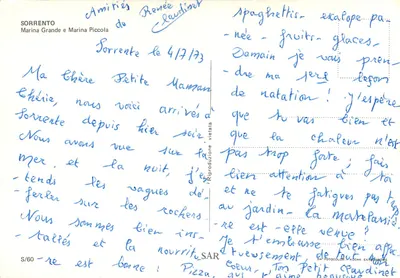 Amitiés Renée
de Claudinet
SORRENTO
Marina Grande e Marina Piccola
Sorrente le 4/7/73
Ma Chère Petite Maman
Chérie, nous voici arrivés à
Sorrente depuis hier soir
Nous avons vue sur la
mer. et la nuit, j'en-
tends les vagues dé-
ferler sur les rochers.
Nous sommes bien ins-
tallés et la nourritu-
re est bonne : Pizza,
S/60
spaghettis - escalope pa-
née - fruits - glaces.
Demain je vais pren-
dre ma 1ère leçon
de natation ! j'espère
que tu vas bien et
que la chaleur n'est
pas trop forte ; fais
bien attention à toi
et ne te fatigues pas trop
au jardin - la
re est-elle venue ?
Je t'embrasse bien affec-
tueusement, de tout mon
cœur. Ton petit Claudinet
qui t'aime beaucoup
SAR